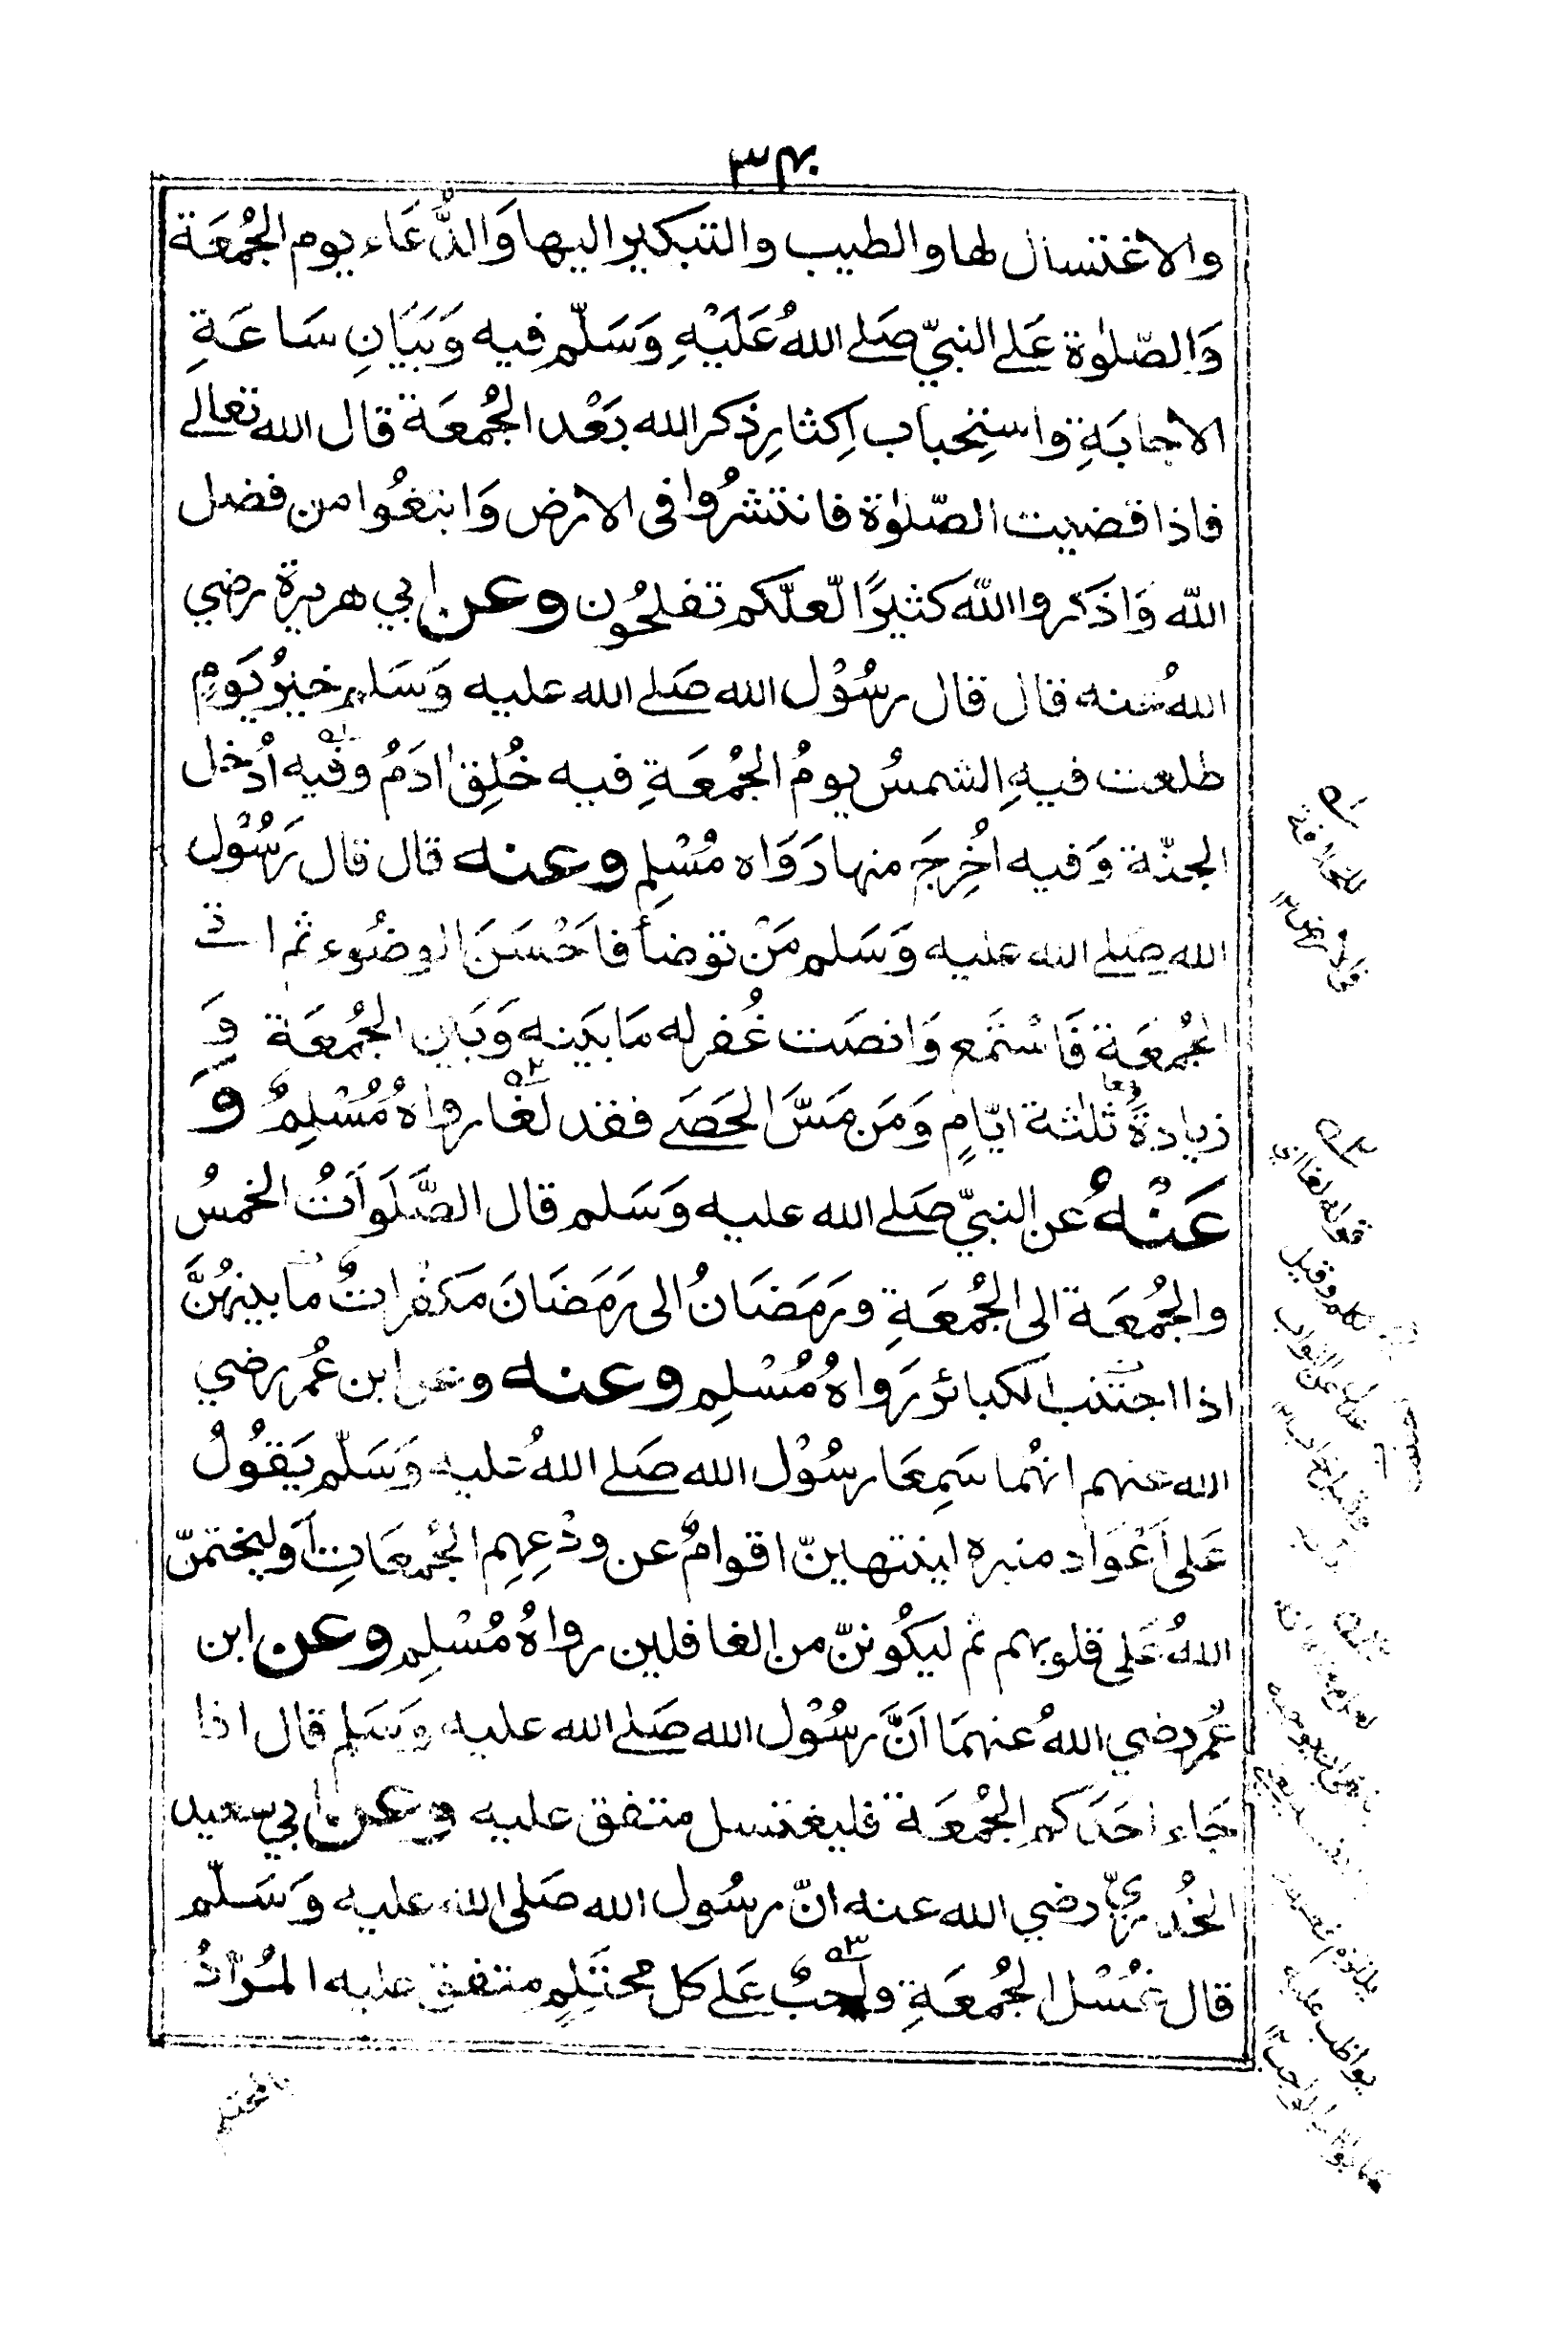 والاغتسال لها والطيب والتبكير اليها وَالدُّعَاء يوم الجُمُعَة
وَالصّلوٰة عَلے النبيّ صَلے اللهُ عَلَيْهِ وَسَلّم فيه وَبَيَانِ سَاعَةِ
الاجابَةِ واستِحباب اِكثارِ ذكر الله بَعْد الجُمُعَة قال الله تعالے
فاذا قضيت الصّلوٰة فانتشرُوا فى الارض وَابتغُوا من فضل
اللّه وَاذكروا اللّه كثيرًا لّعلّكم تفلحُون وعن ابي هريرة رضي
اللهُ عنه قال قال رسُوْل الله صَلے الله عليه وَسَلم خيرُ يَومٍ
طلعت فيهِ الشمسُ يومُ الجُمُعَةِ فيه خُلِقَ اٰدَمُ وفيه اُدْخل
الجنّة وَفيه اخُرِجَ منها رَوَاه مُسْلِم وعنه قال قال رَسُوْل
الله صَلے الله عليه وَسَلم مَنْ توضأ فاَحْسَنَ الوضُوء ثم اتى
الجُمُعَة فَاسْتَمع وَانصَت غُفر له مَا بَينه وَبَين الجُمُعَة وَ
زيادةُ ثلٰثة ايّامٍ وَمَن مَسَّ الحَصَے فقد لَغَا رواهُ مُسْلِمٌ وَ
عَنْهُ عن النبيّ صَلے الله عليه وَسَلم قال الصَّلَوَاَتُ الخمسُ
والجُمُعَة الى الجُمُعَةِ ورَمَضَانُ الى رَمَضَانَ مَكفراتٌ مَا بينهُنَّ
اذا اجتنب الكبائر رَواهُ مُسْلِم وعنه وعن ابن عُمر رضي
الله عنهم انهُما سَمِعَا رسُوْل الله صَلے اللهُ عليه وَسَلّم يَقُوْلُ
عَلى اَعْوَاد منبره لينتهينّ اقوامٌ عن ودْعِهِم الجُمعَاتِ اَوليختمنّ
اللهُ عَلى قلوبهم ثم ليَكُوننّ من الغافلين رواهُ مُسْلِم وعن ابن
عُمر رضي اللهُ عنهمَا اَنَّ رسُوْل الله صَلے الله عليه وَسَلم قال اذا
جَاء احَدَكم الجُمُعَة فليغتسل متفق عليه وعن ابي سعيد
الخُدريّ رضي الله عنه انّ رسُول الله صَلى الله عليه وَسَلّم
قال غُسْل الجُمُعَةِ واجبٌ عَلے كل محتَلِمٍ متفق عليه المُرَادُ
بالمحتلم